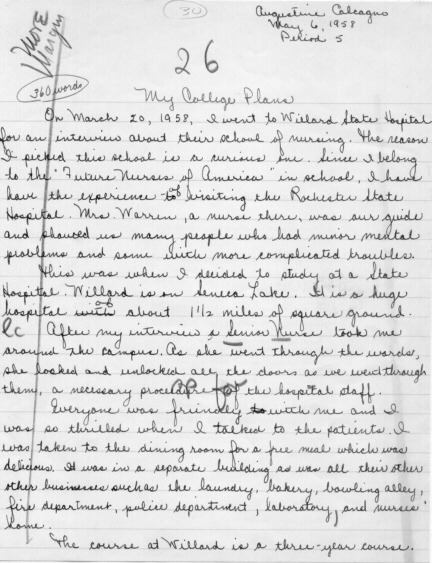 30
Augustine Calcagno
May 6, 1958
Period 5
More
Margin
26
360 words
My College Plans
On March 20, 1958, I went to Willard State Hospital
for an interview about their school of nursing. The reason
I picked this school is a curious one. Since I belong
to the "Future Nurses of America" in school, I have
have the experience to of visiting the Rochester State
Hospital. Mrs. Warren, a nurse there, was our guide
and showed us many people who had minor mental
problems and some with more complicated troubles.
This was when I decided to study at a State
Hospital. Willard is on Seneca Lake. It is a huge
hospital with of about 1 1/2 miles of square ground.
lc After my interview a Senior Nurse took me
around the campus. As she went through the wards,
she locked and unlocked all the doors as we went through
them, a necessary procedure for of the hospital staff.
Everyone was friendly to with me and I
was so thrilled when I talked to the patients. I
was taken to the dining room for a free meal which was
delicious. It was in a separate building as was all their other
other businesses such as the laundry, bakery, bowling alley,
fire department, police department, laboratory, and nurses'
home.
The course at Willard is a three-year course.